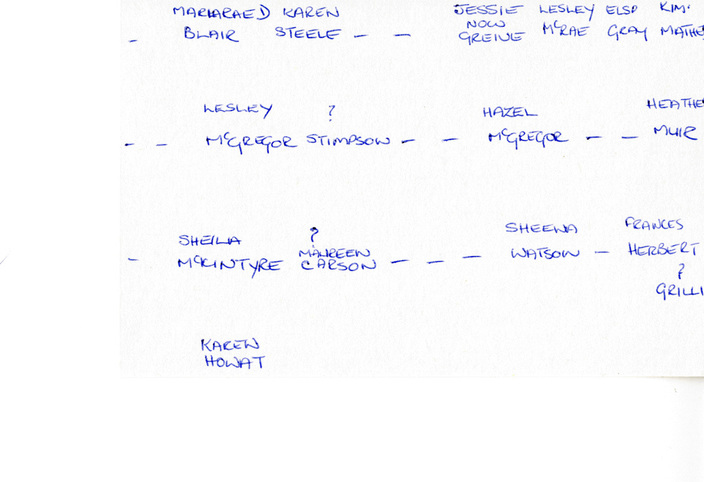 KAREN JESSIE LESLEY KIM
NOW
- BLAIR STEELE - - GREINE McRAE GRAY MATHE
LESLEY ? HAZEL HEATHE
- - McGREGOR STIMPSON - - McGREGOR - - MUIR
SHEENA FRANCES
SHEILIA ?
MAUREEN
- McKINTYRE CARSON - - - WATSON - HERBERT
?
GRILLI
KAREN
HOWAT